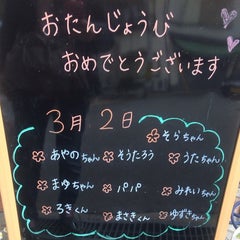 おたんじょうび
おめでとうございます
3月2日
そらちゃん
あやのちゃん そうたろう うたちゃん
まゆちゃん パパ みれいちゃん
ろきくん まさきくん ゆずきちゃん